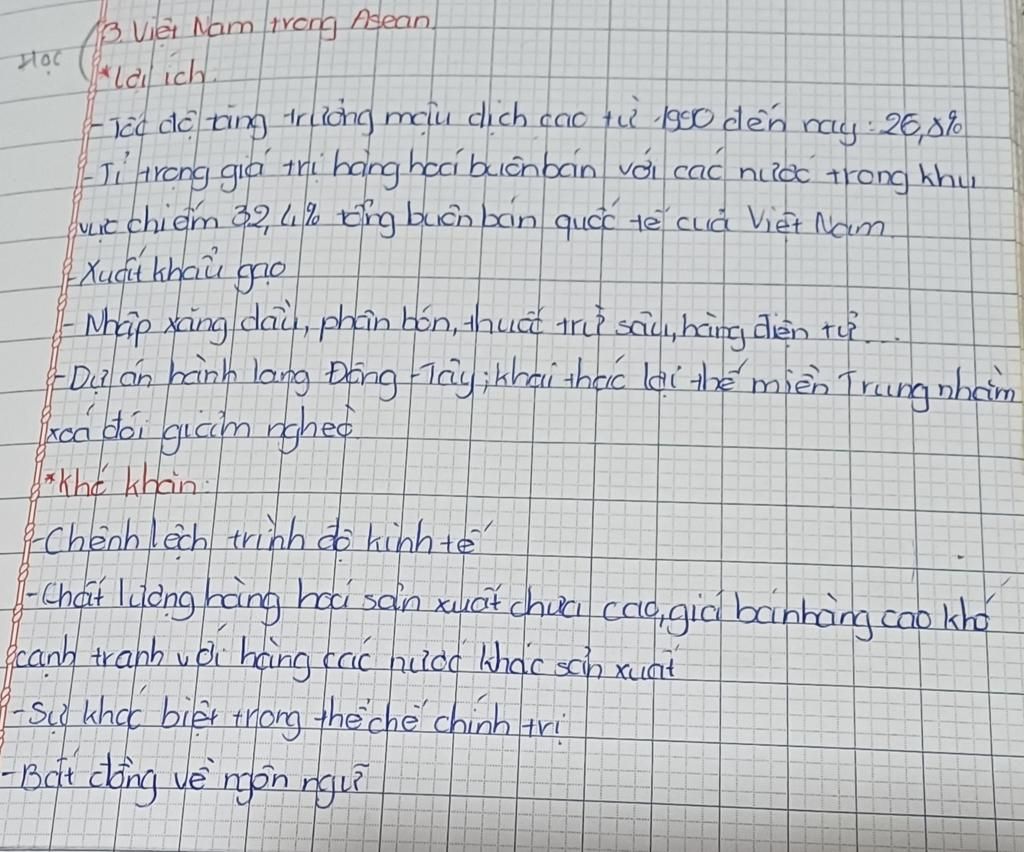 Học
3. Việt Nam trong Asean
*Lợi ích
- Tốc độ tăng trưởng mậu dịch cao từ 1990 đến nay: 26,8%
- Tỉ trọng giá trị hàng hoá buôn bán với các nước trong khu
vực chiếm 32,4% tổng buôn bán quốc tế của Việt Nam
- Xuất khẩu gạo
- Nhập xăng dầu, phân bón, thuốc trừ sâu, hàng điện tử...
- Dự án hành lang Đông - Tây; khai thác lợi thế miền Trung nhằm
xoá đói giảm nghèo
*Khó khăn:
- Chênh lệch trình độ kinh tế
- Chất lượng hàng hoá sản xuất chưa cao, giá bán hàng cao khó
cạnh tranh với hàng các nước khác sản xuất
- Sự khác biệt trong thể chế chính trị
- Bất đồng về ngôn ngữ